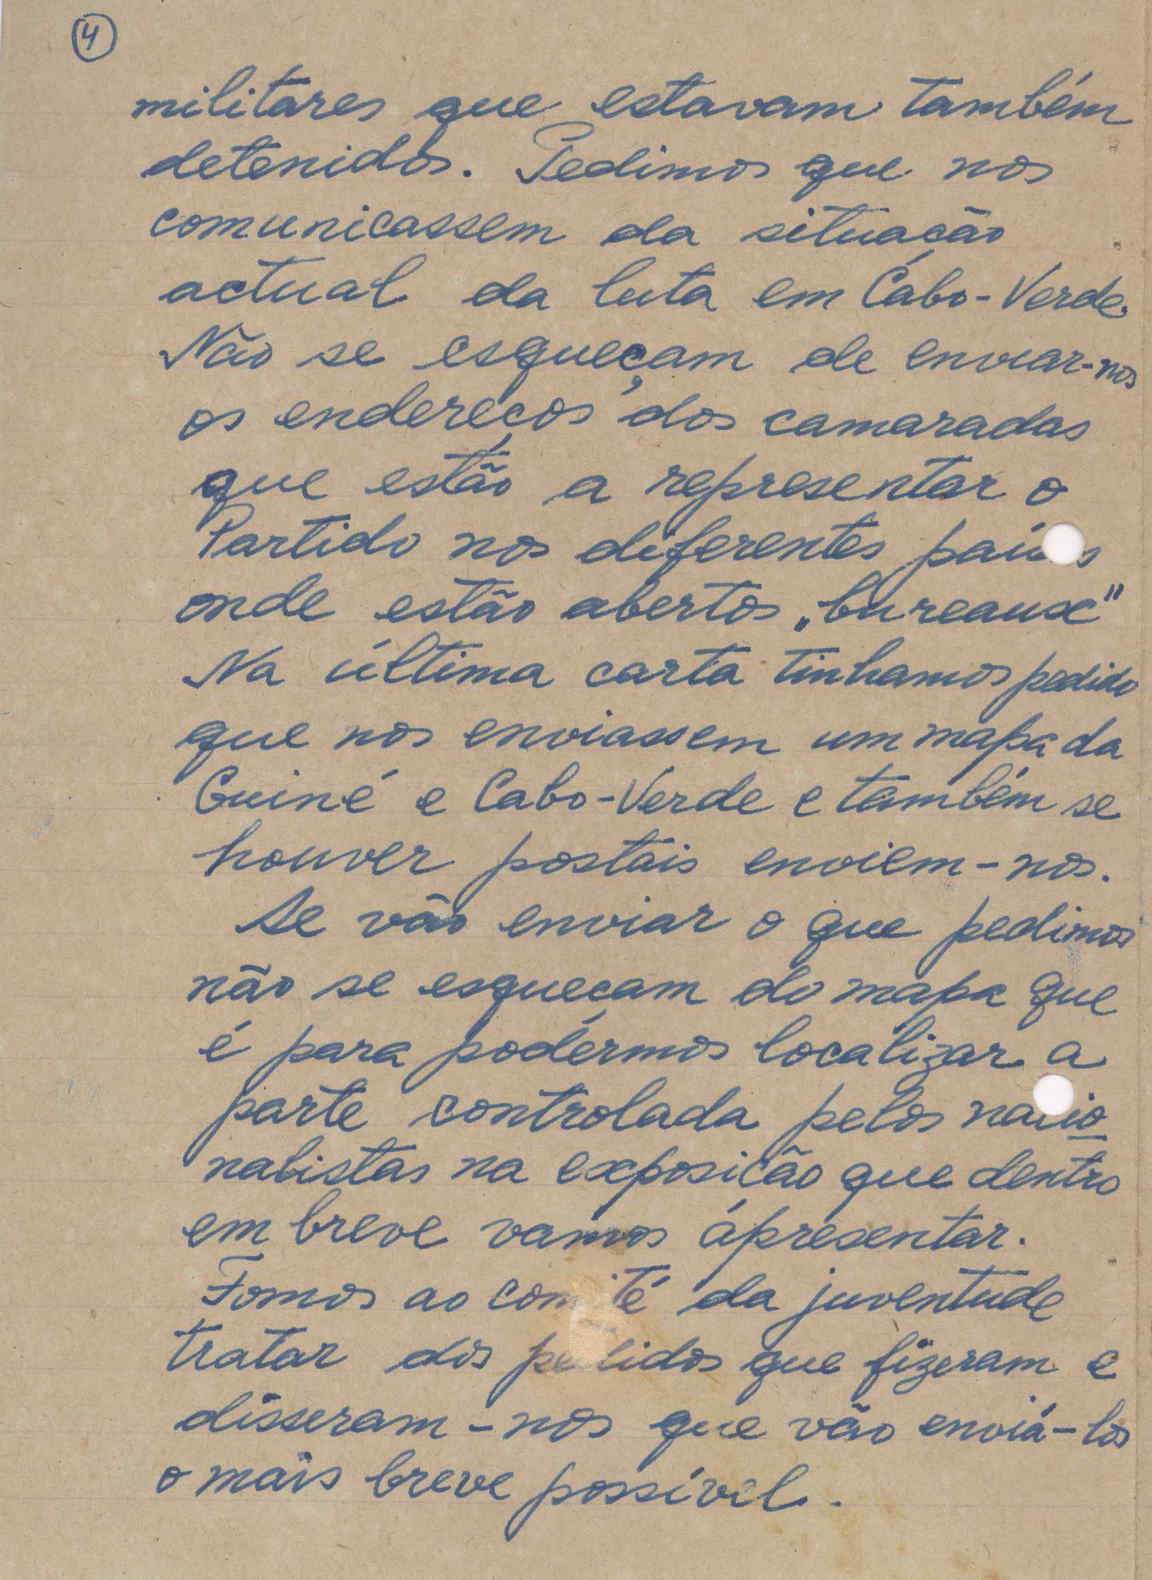 4
militares que estavam também
detenidos. Pedimos que nos
comunicassem da situação
actual da luta em Cabo-Verde.
Não se esqueçam de enviar-nos
os endereços dos camaradas
que estão a representar o
Partido nos diferentes países
onde estão abertos „bureaux"
Na última carta tinhamos pedido
que nos enviassem um mapa da
Guiné e Cabo-Verde e também se
houver postais enviem-nos.
Se vão enviar o que pedimos
não se esqueçam do mapa que
é para podérmos localizar a
parte controlada pelos nacio
nalistas na exposição que dentro
em breve vamos apresentar.
Fomos ao comité da juventude
tratar dos pedidos que fizeram e
disseram-nos que vão enviá-los
o mais breve possível.